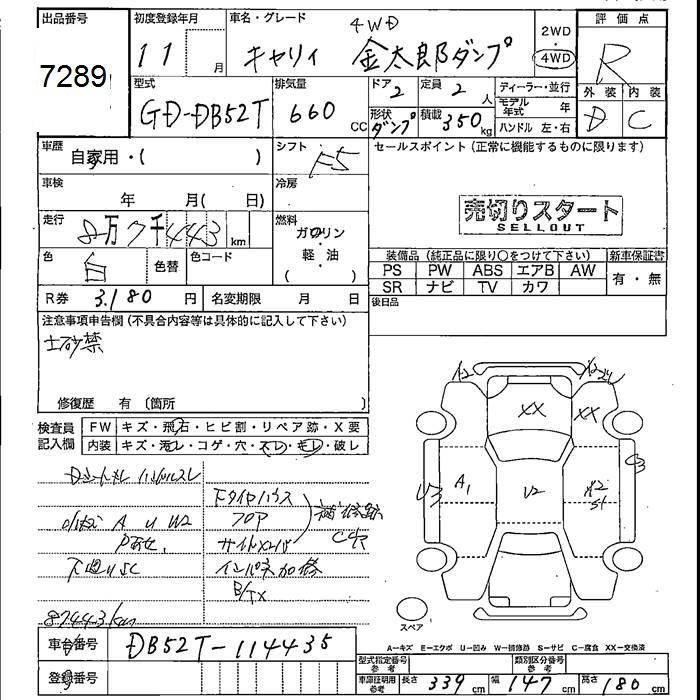 出品番号 初度登録年月 車名・グレード 4WD 2WD 評価点
7289 11 月 キャリイ 金太郎ダンプ 4WD R
型式 排気量 ドア 2 定員 2 人 ディーラー・並行 外装 内装
GD-DB52T 660 CC 形状 ダンプ 積載 350 kg モデル年式 年 D C
ハンドル 左・右
車歴 自家用・( ) シフト F5 セールスポイント (正常に機能するものに限ります)
車検 年 月( 日) 冷房
売切りスタート
SELLOUT
走行 8万7千443 km 燃料 ガソリン・軽・油 ( )
色 白 色替 色コード
装備品 (純正品に限り○をつけて下さい) 新車保証書
PS PW ABS エアB AW 有・無
SR ナビ TV カワ
R券 3,180 円 名変期限 月 日 後日品
注意事項申告欄 (不具合内容等は具体的に記入して下さい)
土砂禁
修復歴 有 (箇所 )
検査員記入欄 FW キズ・飛石・ヒビ割・リペア跡・X要
内装 キズ・汚レ・コゲ・穴・スレ・キレ・破レ
A2 X2
XX XX
U3 A1 U2 A2 S1 C3
Dシートキレ ハンドルスレ
Fタイヤハウス
A U W2 フロア 補修跡 C穴
下廻りSC インパネ加修
B/TX
87443km
スペア
A-キズ E-エクボ U-凹み W-補修跡 S-サビ C-腐食 XX-交換済
車台番号 DB52T-114435
登録番号
型式指定番号 参考 類別区分番号 参考
車庫証明用 参考 長さ 339 cm 幅 147 cm 高さ 180 cm